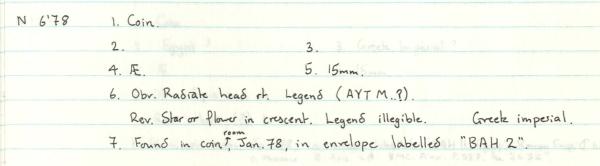 N 6'78 1. Coin.
2. 3.
4. Æ. 5. 15mm.
6. Obv. Radiate head rt. Legend (AYT M..?).
Rev. Star or flower in crescent. Legend illegible. Greek imperial.
7. Found in coin room, Jan. 78, in envelope labelled "BAH 2".